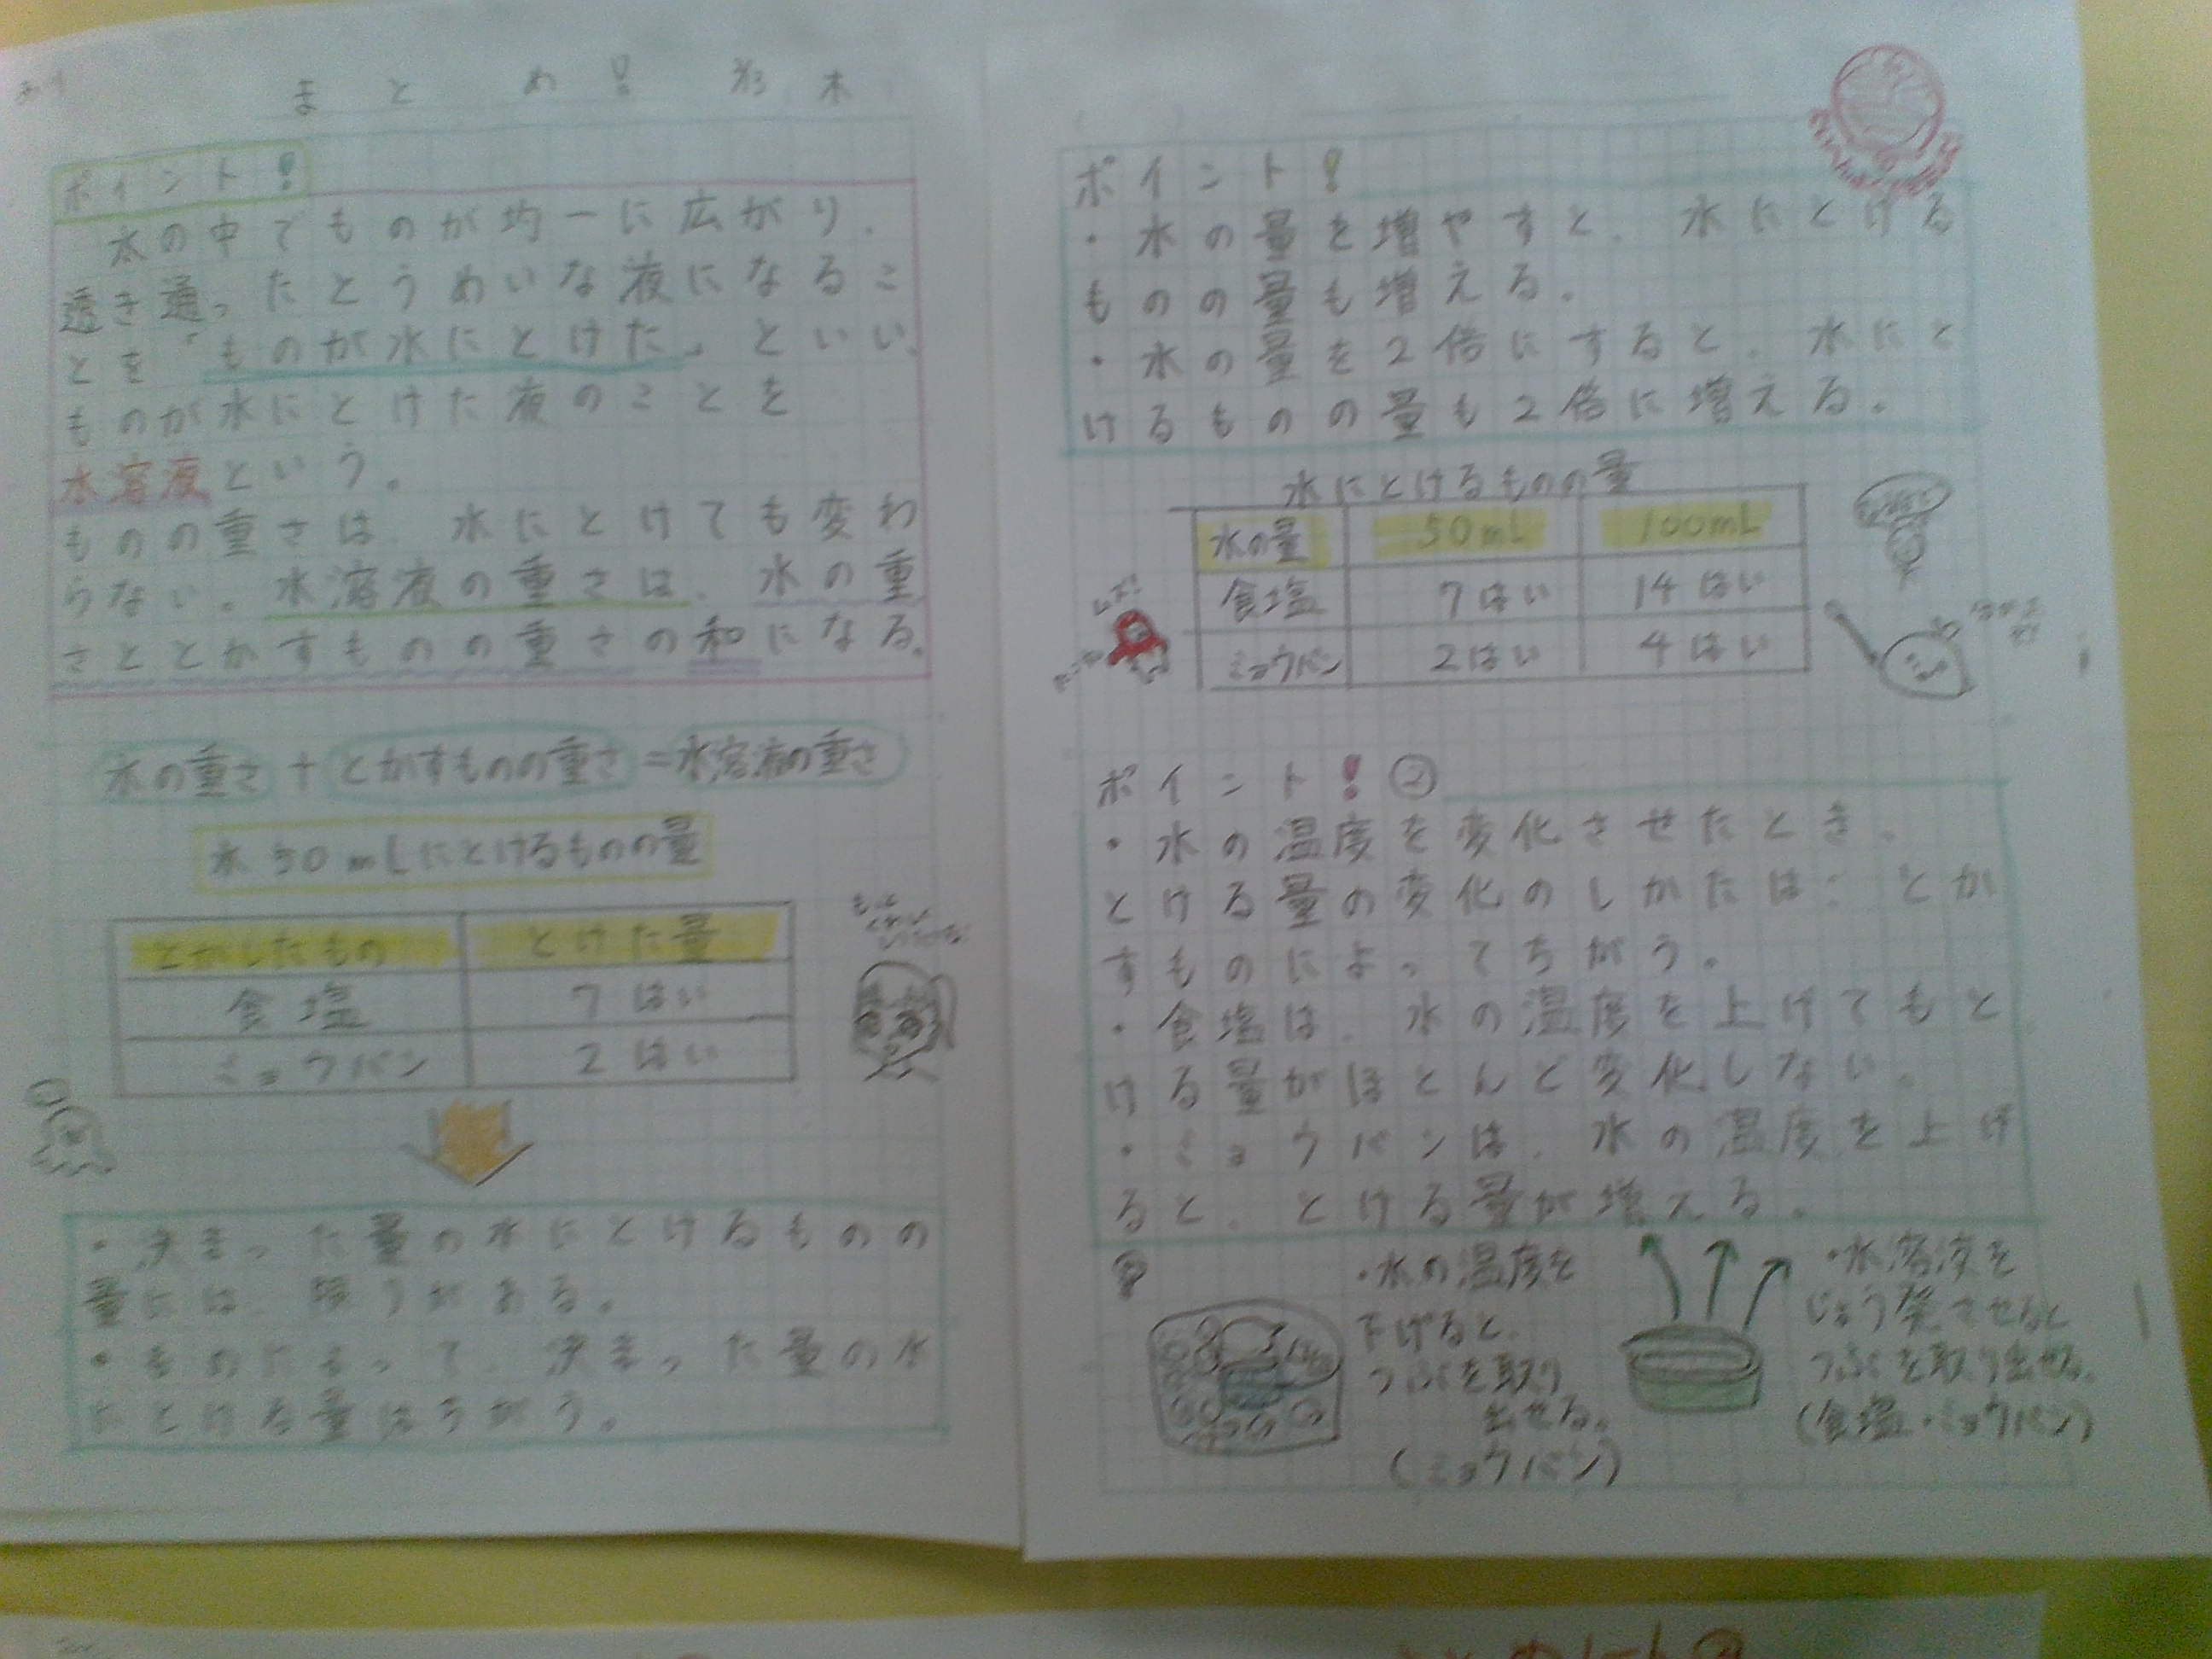 まとめ! 木
ポイント!
水の中でものが均一に広がり、
透き通ったとうめいな液になるこ
とを「ものが水にとけた」といい、
ものが水にとけた液のことを
水溶液という。
ものの重さは、水にとけても変わ
らない。水溶液の重さは、水の重
さととかすものの重さの和になる。
水の重さ+とかすものの重さ=水溶液の重さ
水50mLにとけるものの量
とかしたもの とけた量
食塩 7はい
ミョウバン 2はい
・決まった量の水にとけるものの
量には、限りがある。
・ものによって、決まった量の水
にとける量はちがう。
ポイント!
・水の量を増やすと、水にとける
ものの量も増える。
・水の量を2倍にすると、水にと
けるものの量も2倍に増える。
水にとけるものの量
水の量 50mL 100mL
食塩 7はい 14はい
ミョウバン 2はい 4はい
ポイント!②
・水の温度を変化させたとき、
とける量の変化のしかたは、とか
すものによってちがう。
・食塩は、水の温度を上げてもと
ける量がほとんど変化しない。
・ミョウバンは、水の温度を上げ
ると、とける量が増える。
・水の温度を
下げると、
つぶを取り
出せる。
(ミョウバン)
・水溶液を
じょう発させると
つぶを取り出せる。
(食塩・ミョウバン)